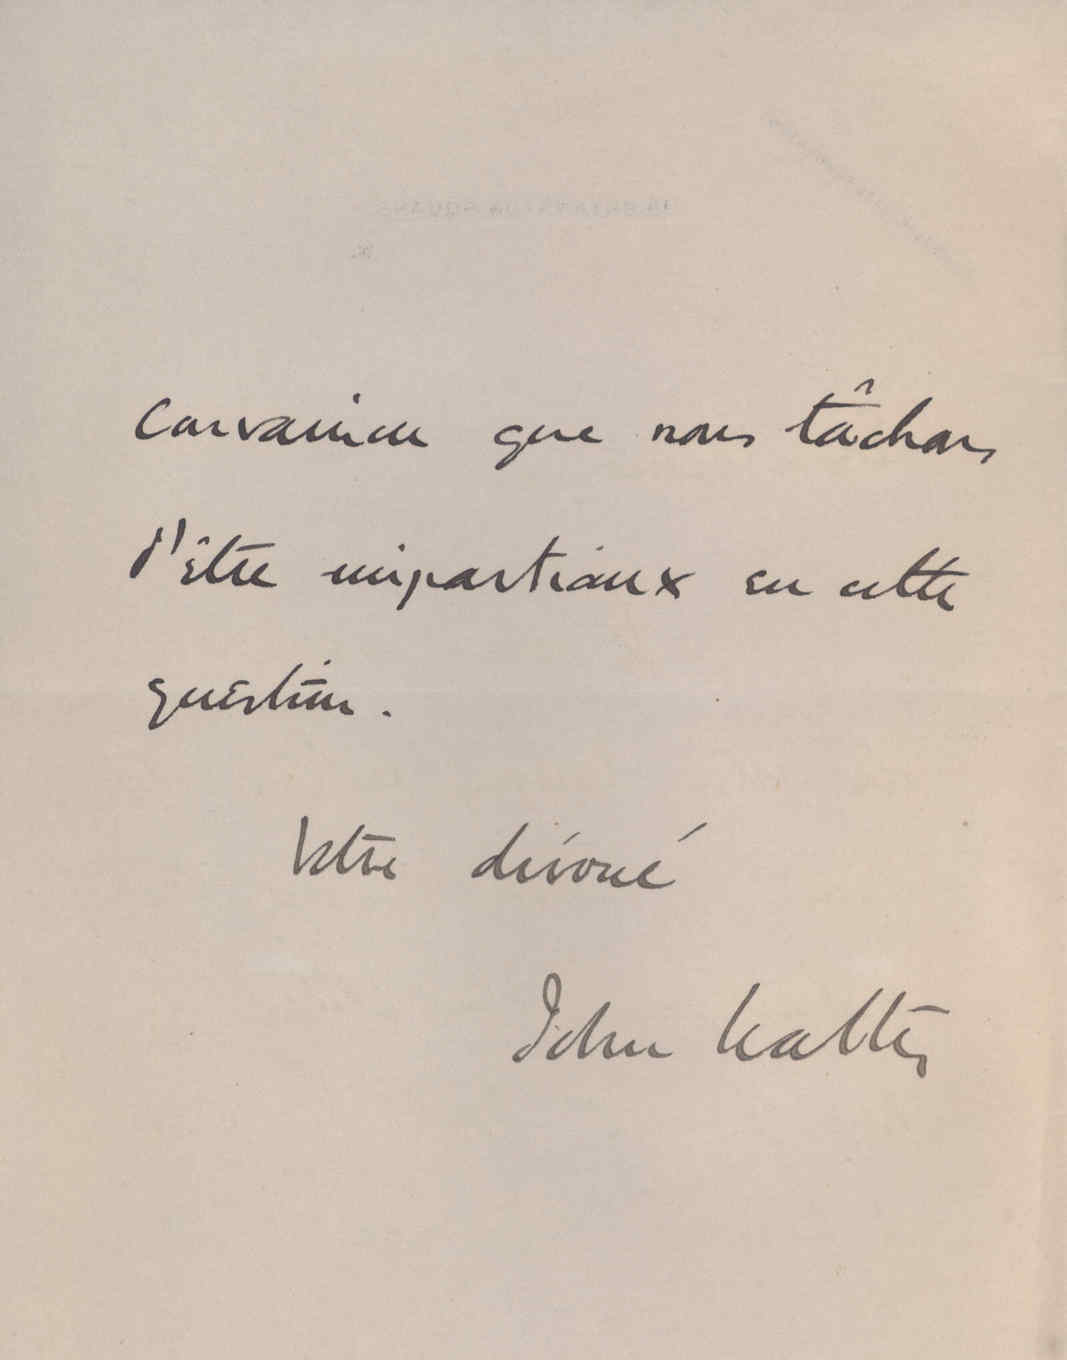 convaincu que nous tâchons
d'être impartiaux en cette
question.
Votre dévoué
John Walter